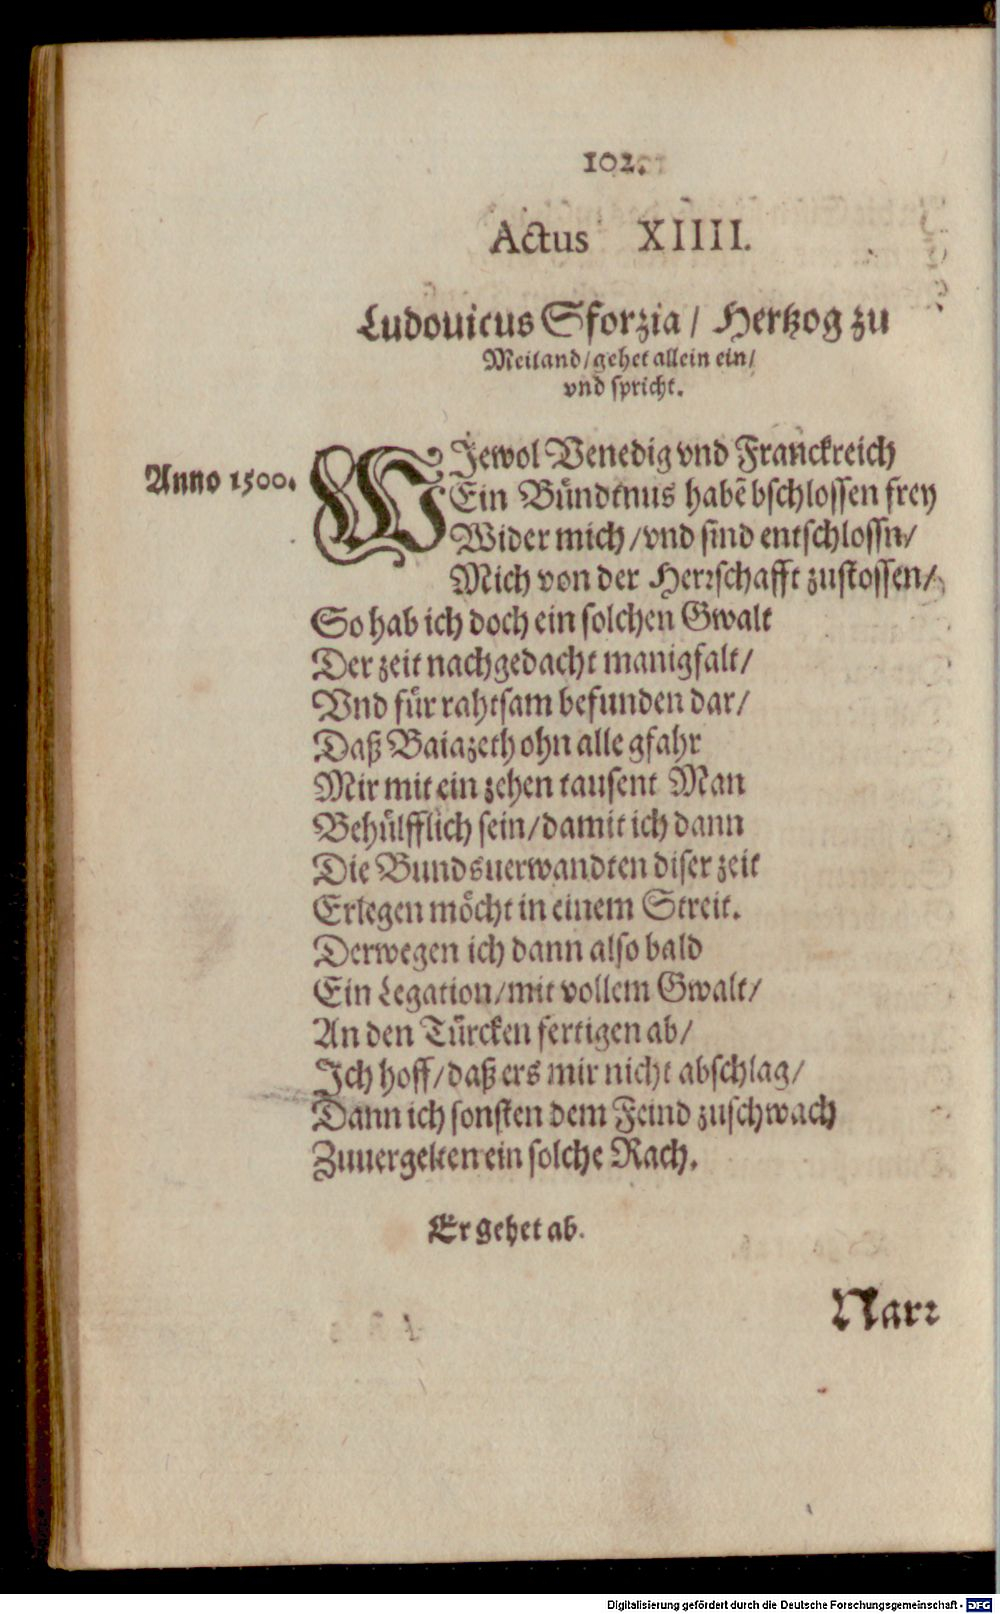 102.
Actus XIIII.
Ludouicus Sforzia / Hertzog zu
Meiland / gehet allein ein /
vnd spricht.
Anno 1500.
WJewol Venedig vnd Franckreich
Ein Bündtnus habẽ bschlossen frey
Wider mich / vnd sind entschlossn /
Mich von der Herrschafft zustossen /
So hab ich doch ein solchen Gwalt
Der zeit nachgedacht manigfalt /
Vnd für rahtsam befunden dar /
Daß Baiazeth ohn alle gfahr
Mir mit ein zehen tausent Man
Behülfflich sein / damit ich dann
Die Bundsuerwandten diser zeit
Erlegen möcht in einem Streit.
Derwegen ich dann also bald
Ein Legation / mit vollem Gwalt /
An den Türcken fertigen ab /
Jch hoff / daß ers mir nicht abschlag /
Dann ich sonsten dem Feind zuschwach
Zuuergelten ein solche Rach.
Er gehet ab.
Narr
Digitalisierung gefördert durch die Deutsche Forschungsgemeinschaft - DFG